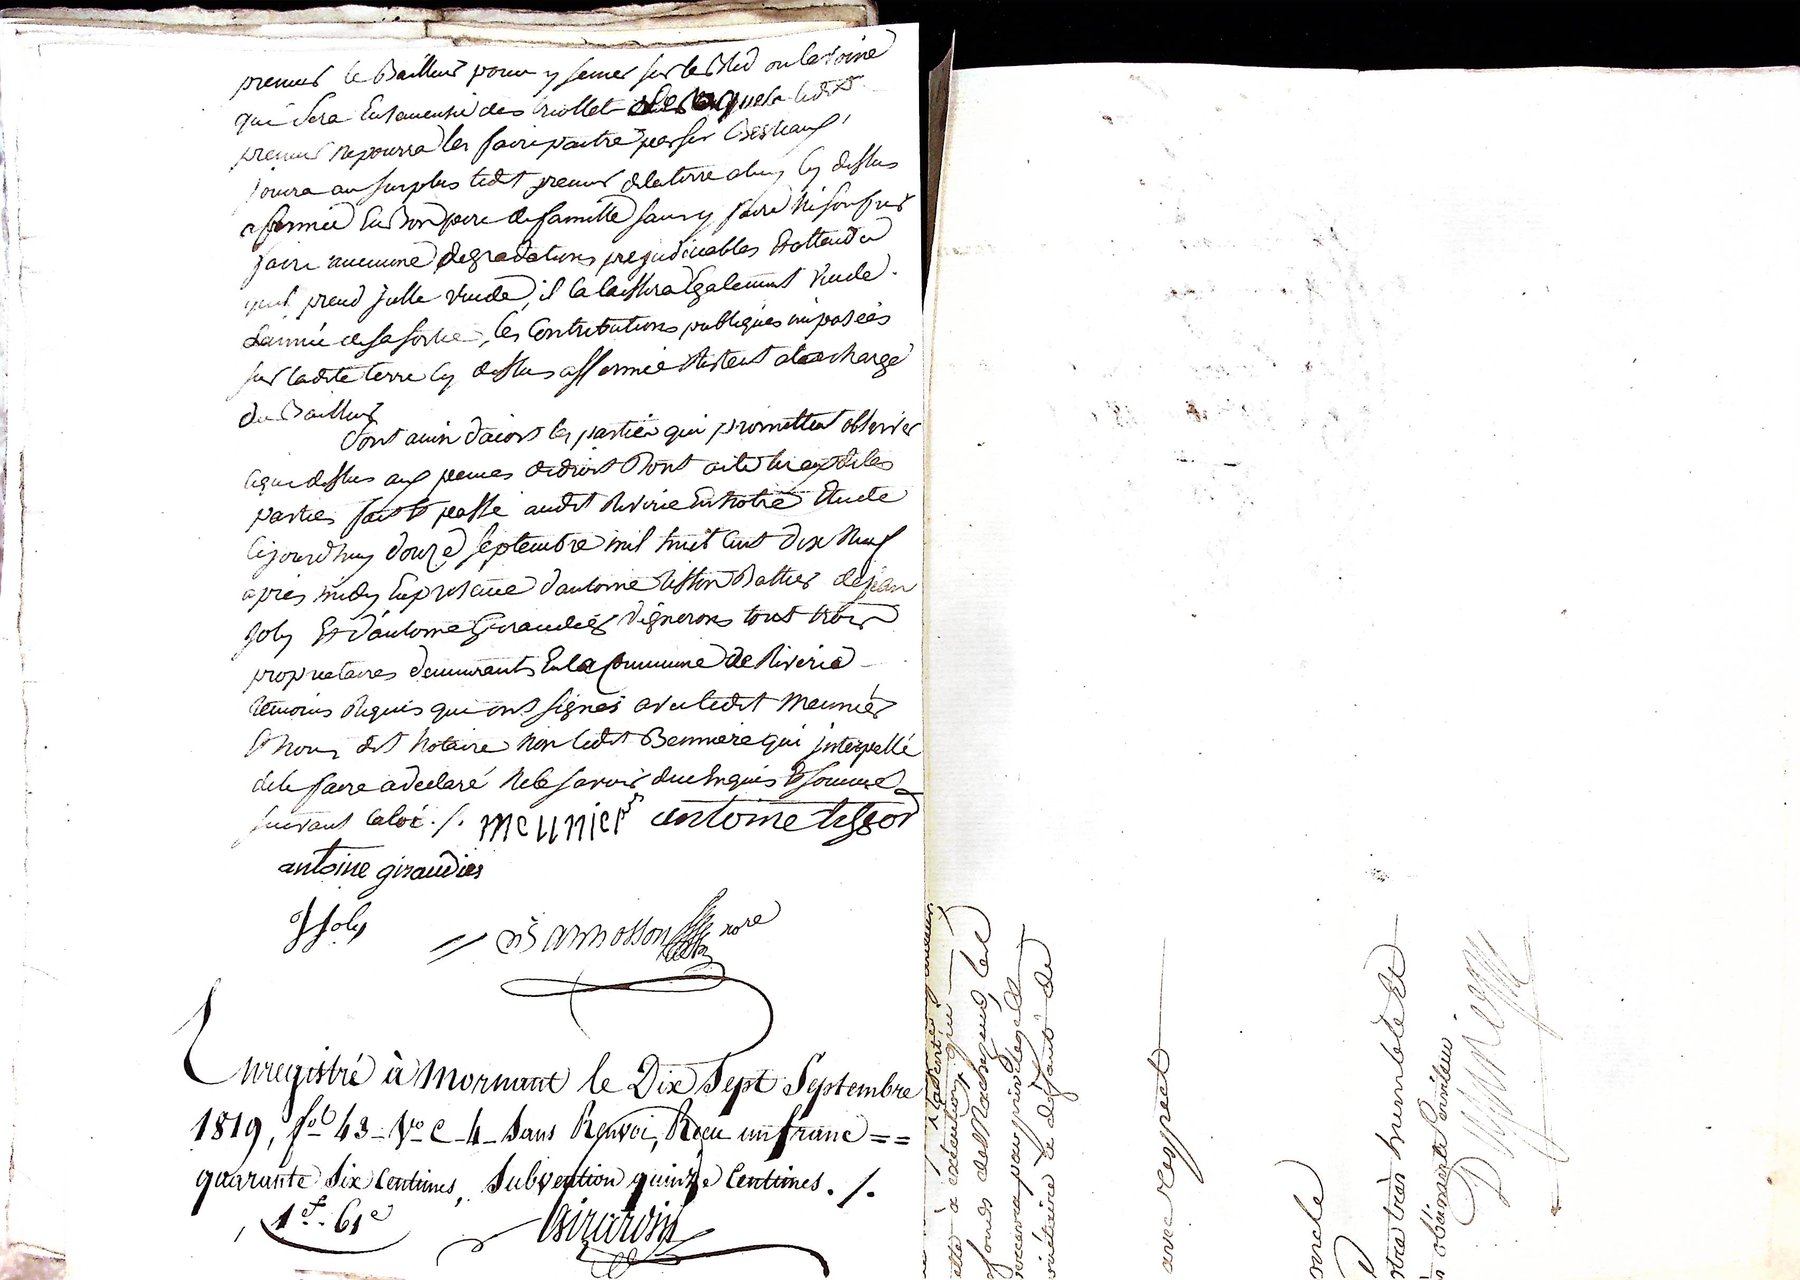 preneur le Bailleur pourra y semer sur le Bled ou lavoine
qui sera Ensemensé des triollet lesquels ledit
preneur ne pourra les faire paitre par ses Bestiaux
jouira au surplus ledit preneur de la terre a luy cy dessus
afermée En Bon pere de famille sans y faire ni soufrir
faire aucune degradations prejudiciables Et attendu
quil prend jcelle vuide, il la laissera Egalement vuide
Lannée de sa sortie, les Contributions publiques imposées
sur ladite terre cy dessus affermée Restent a la charge
du Bailleur
Sont ainsi dacord les parties qui promettent observer
ce que dessus aux peines de droit Dont acte lu aux dites
parties fait & passé audit Riverie En notre Etude
cejourdhuy douze septembre mil huit cent dix neuf
apres midy En presence dantoine tisson Rattier de jean
joly Et dantoine Giraudier vignerons tous trois
proprietaires demeurants En la Commune de Riverie
temoins Requis qui ont signés avec ledit Meunier
& Nous dit Notaire Non ledit Benniere qui jnterpellé
de le faire a declaré Ne le savoir du Enquis & sommé
suivant la loi ./. meunier antoine tisson
antoine giraudier
J Joly
Bamosson nore
Enregistré à Mornant le Dix Sept Septembre
1819, fo 43 Vo C 4 Sans Renvoi, Recu un franc ==
quarante Six Centimes, Subvention quinze Centimes ./.
1f. 61c Girardin
à exécution, qui
fonds de Marchand, les
recevra par privilege &
militaire le défaut de
avec respect
oncle
votre très humble &
obéissant serviteur